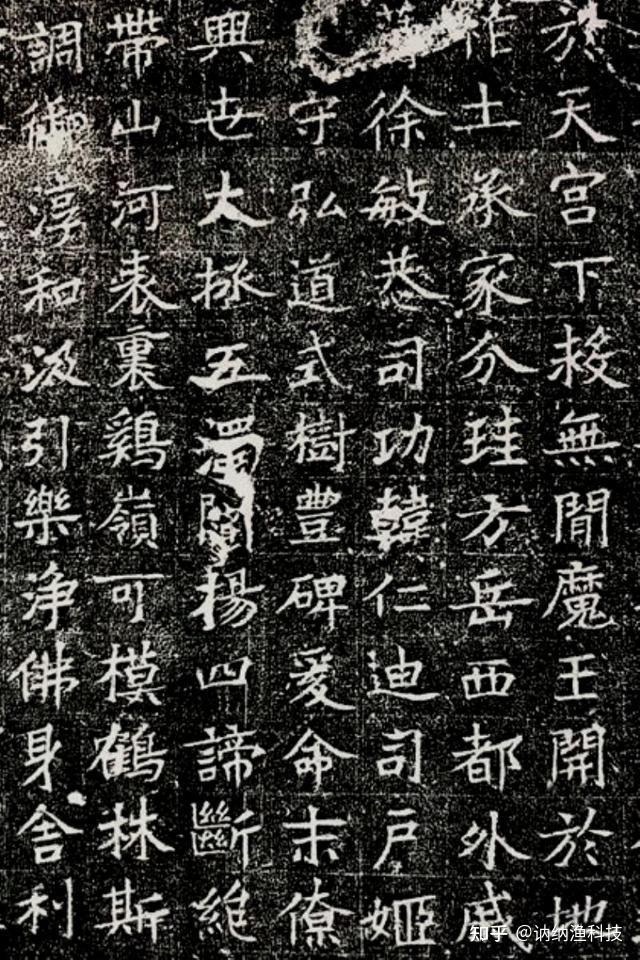 於天宮下拔無間魔王開於地
作土承家分珪方岳西都外戚
等徐敏恭司功韓仁迪司戶姬
守弘道式樹豐碑爰命末僚
興世大拯五濁闡揚四諦斷
帶山河表裏鷄嶺可模鶴林斯
調御淳和汲引樂淨佛身舍利
知乎 @讷纳渔科技